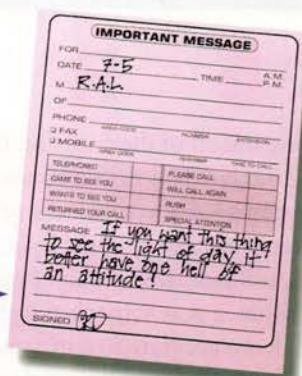 IMPORTANT MESSAGE
FOR
DATE 7-5 TIME A.M. P.M.
M R.A.L.
OF
PHONE
AREA CODE NUMBER EXTENSION
FAX
MOBILE
AREA CODE NUMBER TIME TO CALL
TELEPHONED PLEASE CALL
CAME TO SEE YOU WILL CALL AGAIN
WANTS TO SEE YOU RUSH
RETURNED YOUR CALL SPECIAL ATTENTION
MESSAGE If you want this thing
to see the light of day it
better have one hell of
an attitude!
SIGNED